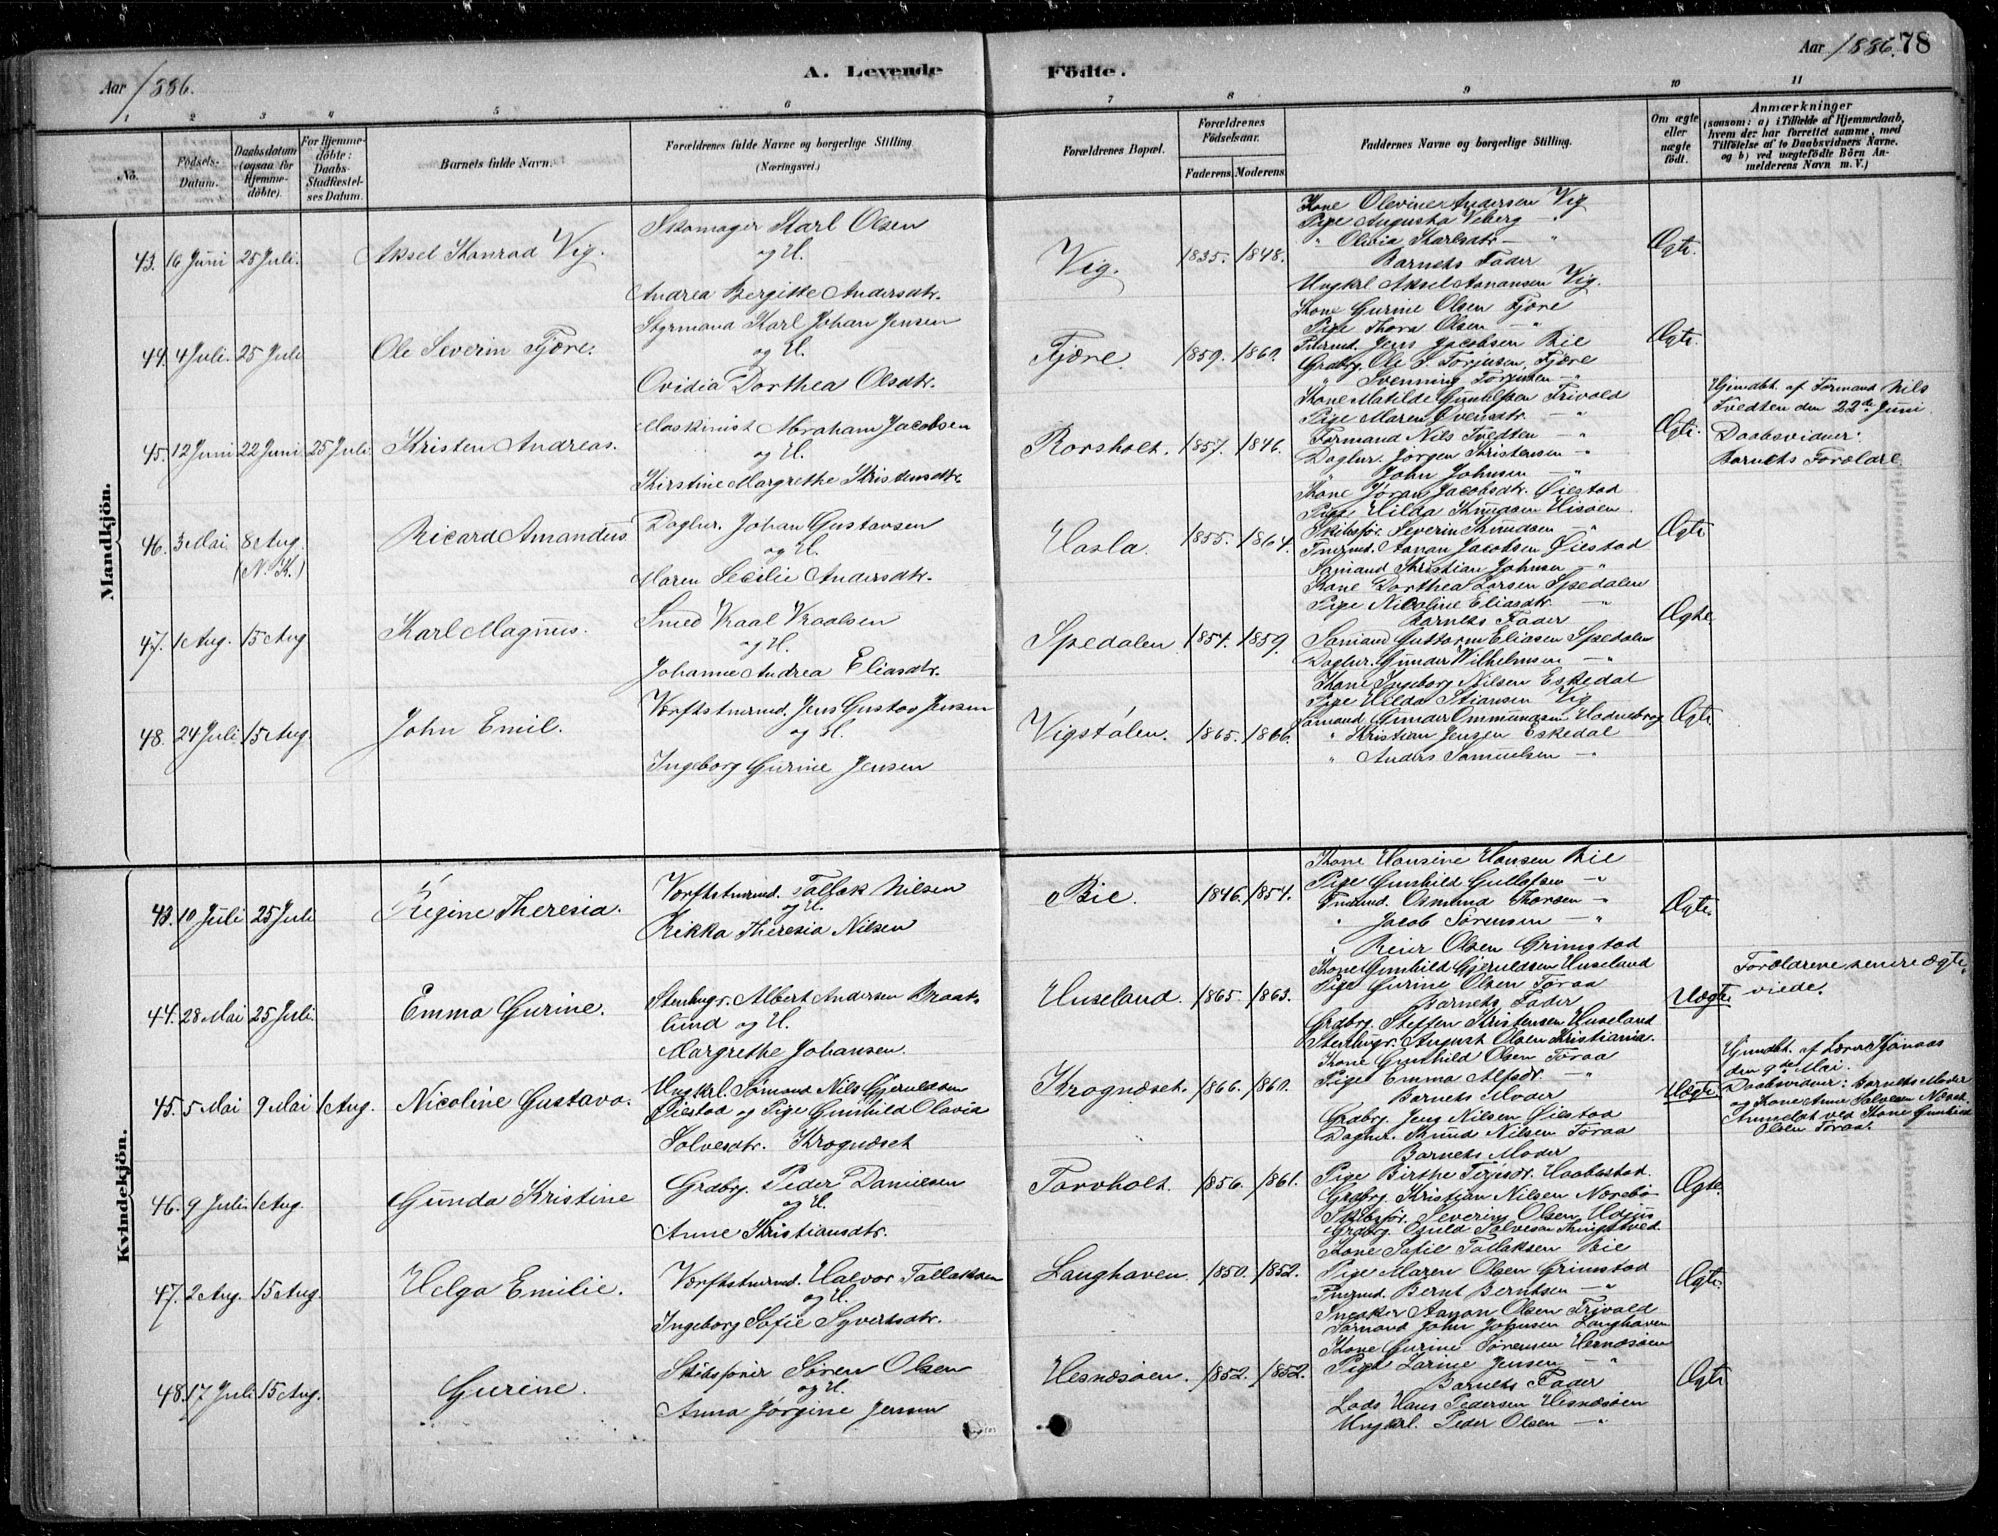 Aar 1886.
A. Levende Fødte.
Aar 1886. 78
1 2 3 4 5 6 7 8 9 10 11
No.
Fødsels-Datum.
Daabsdatum (ogsaa for Hjemmedöbte).
For Hjemmedöbte: Daabs-Stadfestelses Datum.
Barnets fulde Navn.
Forældrenes fulde Navne og borgerlige Stilling (Næringsvei.)
Forældrenes Bopæl.
Forældrenes Födselsaar.
Faderens Moderens
Faddernes Navne og borgerlige Stilling.
Om ægte eller uægte födt.
Anmærkninger
(saasom: a) i Tilfælde af Hjemmedaab, hvem der har forrettet samme, med Tilföielse af to Daabsvidners Navne. og b) ved uægtefödte Börn Anmelderens Navn m. V.)
Mandkjön.
43. 16 Juni 25 Juli. Aksel Konrad Vig.
Skomager Karl Olsen
og H.
Andrea Bergitte Andersdtr.
Vig. 1835. 1848.
Kone Olevine Andersen Vig
Pige Augusta Viberg "
" Olivia Karlsdtr — "
Barnets Fader
Ungkrl Aksel Aanansen Vig.
Ægte.
44. 4 Juli. 25 Juli Ole Severin Fjære.
Styrmand Karl Johan Jensen
og H.
Ovidia Dorthea Olsdtr.
Fjære. 1859. 1861.
Kone Gurine Olsen Fjære
Pige Thora Olsen — "
Tmrmd. Jens Jacobsen Bie
Grdbrg. Ole S. Torjusen, Fjære
" Svenning Torjusen — "
Ægte.
45. 12 Juni 22 Juni 25 Juli. Kristen Andreas.
Maskinist Abraham Jacobsen
og H.
Kirstine Margrethe Kristensdtr.
Rorsholt. 1857. 1846.
Kone Matilde Gundersen Frivold
Pige Maren Evensdtr. — "
Formand Nils Tvedten — "
Daglnr. Jørgen Kristensen — "
" John Johnsen — "
Ægte.
Hjemdbt. af Formand Nils
Tvedten den 22de Juni.
Daabsvidner:
Barnets Forældre.
46. 3 Mai 8 Aug. (N. K.) Ricard Amandus.
Daglnr. Johan Gustavsen
og H.
Maren Secilie Andersdtr.
Hasla. 1855. 1864.
Kone Jøran Jacobsdtr. Øiestad
Pige Hilda Knudsen Hisøen.
Skibsfør. Severin Knudsen — "
Tmrmd. Aanon Jacobsen Øiestad
Sømand Kristian Johnsen — "
Ægte
47. 1 Aug. 15 Aug Karl Magnus.
Smed Vraal Vraalsen
og H.
Johanne Andrea Eliasdtr.
Spedalen. 1854. 1859.
Kone Dorthea Larsen Spedalen
Pige Nicoline Eliasdtr. — "
Barnets Fader
Sømand Guttorm Eliasen Spedalen
Daglnr. Gunder Wilhelmsen — "
Ægte.
48. 24 Juli. 15 Aug. John Emil.
Værftstmrmd. Jens Gustav Jensen
og H.
Ingeborg Gurine Jensen
Vigstølen. 1865. 1866.
Kone Ingeborg Nilsen Eskedal
Pige Hilda Stiansen Vig
Sømand Gunder Ommundsen Hadneborg
" Kristian Jensen Eskedal
" Anders Samuelsen — "
Ægte.
Kvindekjön.
43. 10 Juli 25 Juli Regine Theresia.
Værftstmrmd. Tallak Nilsen
og H.
Rikka Theresia Nilsen
Bie. 1846. 1854.
Kone Hansine Hansen Bie
Pige Gunhild Gullofsen — "
Tmrmd. Osmund Thorsen — "
" Jacob Sørensen — "
" Reier Olsen Grimstad
Ægte.
44. 28 Mai 25 Juli. Emma Gurine.
Stenhugr. Albert Andersen Braatlund og H.
Margrethe Johansen.
Huseland. 1865. 1863.
Kone Gunhild Gjeruldsen Huseland
Pige Gurine Olsen Toraa
Barnets Fader
Grdbrg. Steffen Kristensen Huseland
Stenhugr. August Olsen Kristiania.
Uægte.
Forældrene senere ægteviede.
45. 5 Mai 9 Mai 1 Aug. Nicoline Gustava.
Ungkrl. Sømand Nils Gjeruldsen
Øiestad og Pige Gunhild Olavia
Solvesdtr. Krognæset
Krognæset. 1866. 1861.
Kone Gunhild Olsen Toraa
Pige Emma Alfsdr. — "
Barnets Moder
Grdbrg. Jens Nilsen Øiestad
Daglnr. Knud Nilsen Toraa
Uægte
Hjemdbt. af Lærer Kjønaas
den 9de Mai.
Daabsvidner: Barnets Moder
og Kone Anne Salvesen Næset
Anmeldt ved Kone Gunhild
Olsen Toraa.
46. 9 Juli 1 Aug. Gunda Kristine
Grdbrg. Peder Danielsen
og H.
Anne Kristiansdtr.
Torvholt. 1856. 1861.
Barnets Moder
Pige Birthe Terjesdr. Haabestad.
Grdbrg. Kristian Nilsen Nærebø
Skibsfør. Severin Olsen
Grdbrg. Osuld Salvesen
Ægte.
47. 2 Aug. 15 Aug. Helga Emilie.
Værftstmrmd. Halvor Tallaksen
og H.
Ingeborg Sofie Syvertsdtr.
Langhaven. 1850. 1852.
Kone Sofie Tallaksen Bie
Pige Maren Olsen Grimstad
Tmrmd. Bernt Berntsen — "
Snedker Aanon Olsen Frivold
Tømmmd. John Johnsen Langhaven
Ægte.
48. 17 Juli 15 Aug. Gurine.
Skibsfører Søren Olsen
og H.
Anna Jørgine Jensen
Hesnæsøen. 1852. 1852.
Kone Gurine Sørensen Hesnæsøen
Pige Larine Jensen — "
Barnets Fader
Lods Hans Pedersen Hesnæsøen
Ungkrl. Peder Olsen — "
Ægte